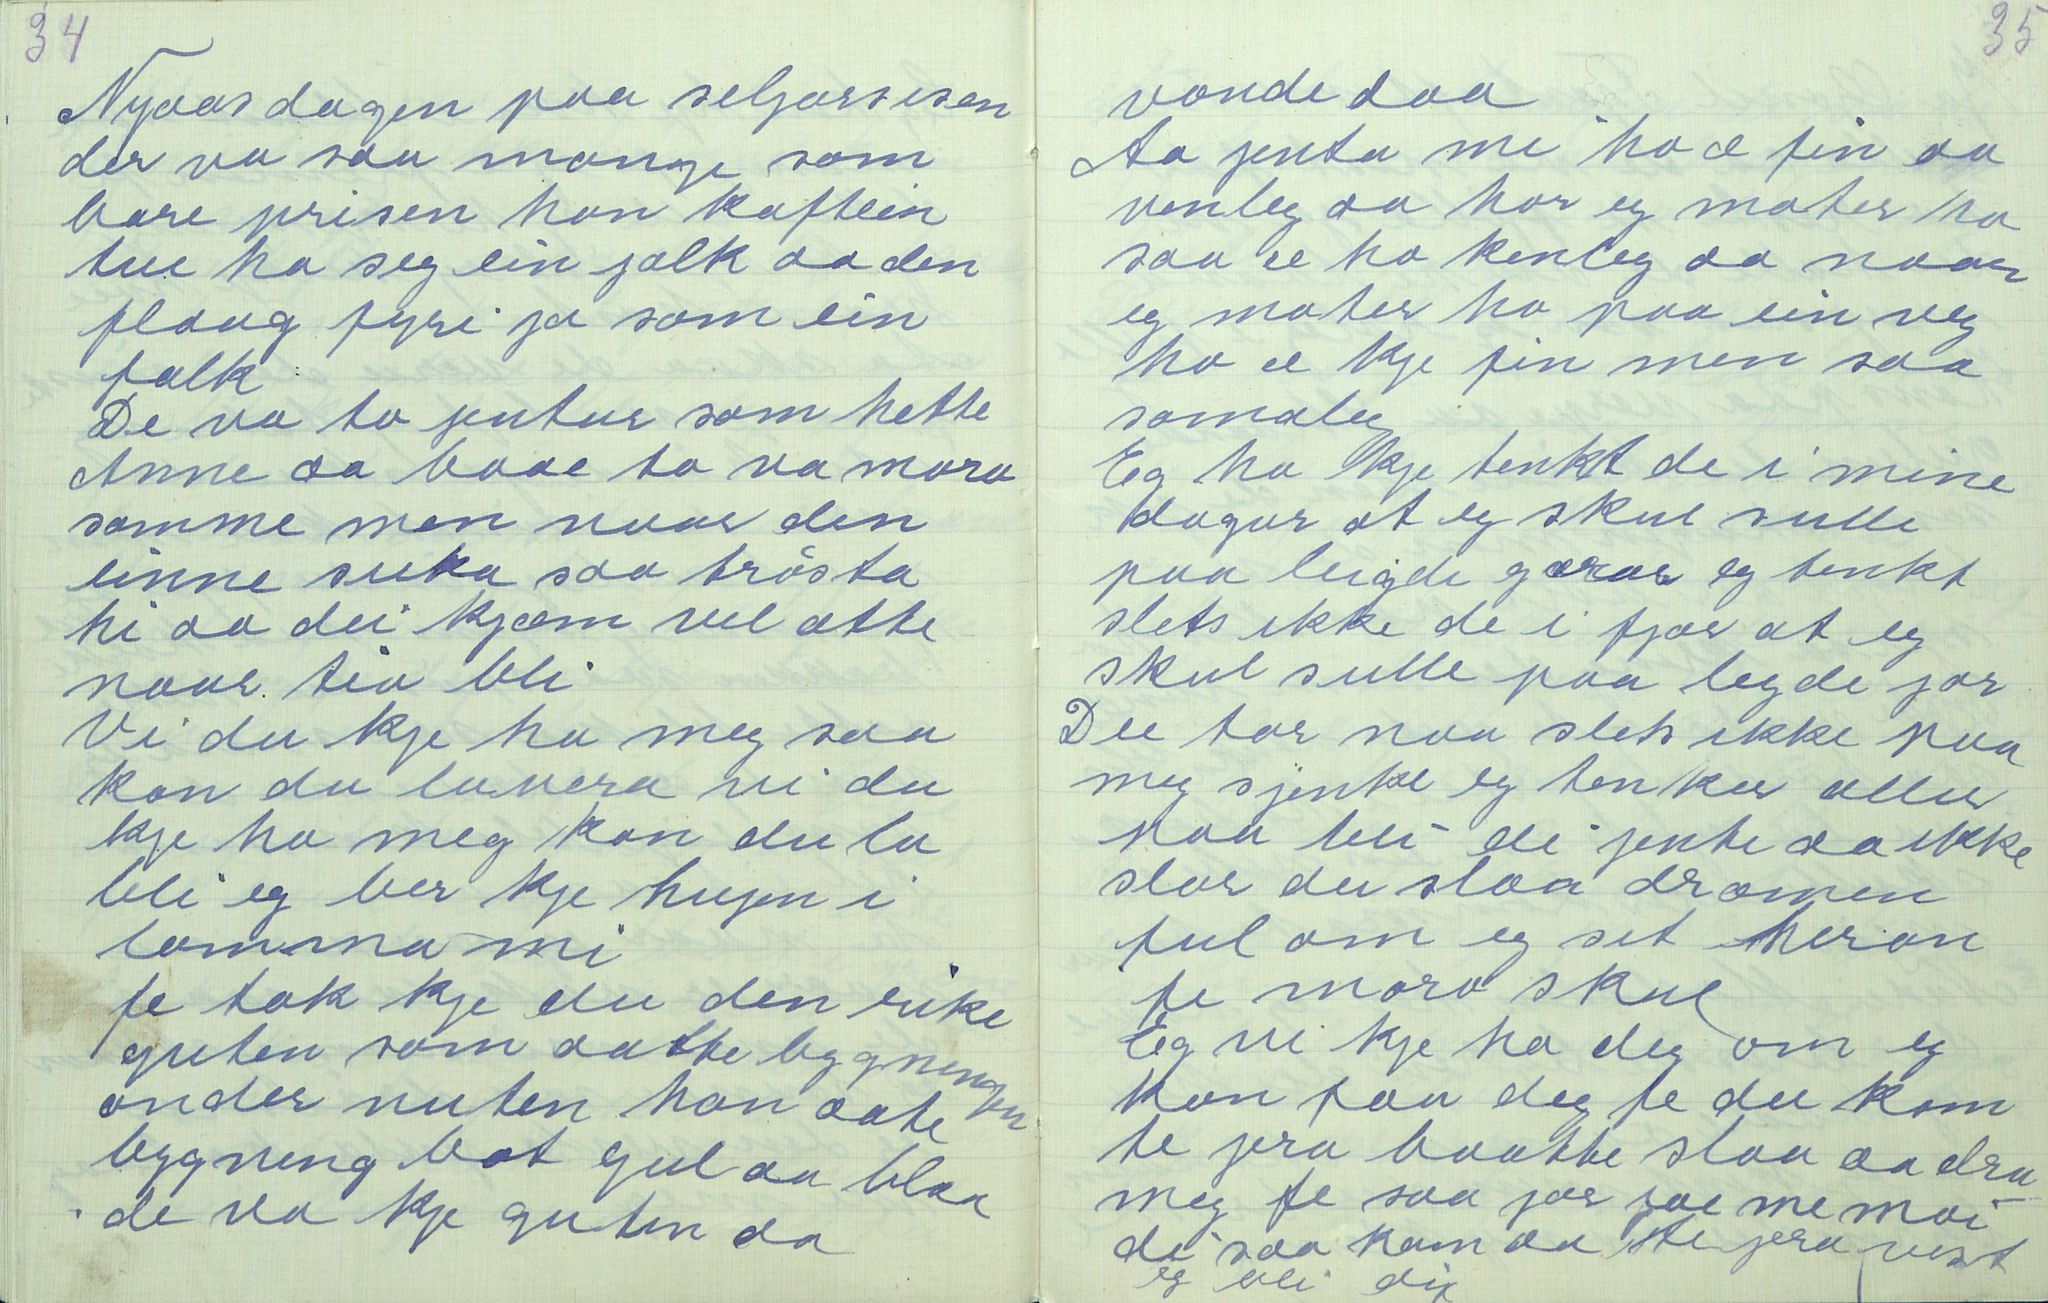 34
Nyaarsdagen paa seljorsisen
der va saa mange som
bare prisen han kaftein
tue ha seg ein jalk aa den
flaug fyri ja som ein
falk
De va to jentur som hette
Anne aa baae to va mora
samme men naar den
einne suka saa trøsta
hi aa dei kjæm vel atte
naar tia bli
Vi du kje ha meg saa
kan du lavera vi du
kje ha meg kan du la
bli eg ber kje hugen i
lomma mi
fe tok kje du den rike
guten som aatte bygningen
onder nuten han aate
bygning bot gul aa blaa
de va kje guten aa
35
vonde daa
Aa jenta mi ho æ fin aa
venleg aa har eg mater ho
saa æ ho kenleg aa naar
eg mater ho paa ein veg
ho æ kje fin men saa
somaleg
Eg ha kje tenkt de i mine
dagar at eg skul sulle
paa leigde garar eg tenkt
slets ikke de i fjor at eg
skul sulle paa legde jor
Du tor naa slets ikke paa
meg sjenke eg tenker aller
paa bli di jente aa ikke
slor du slaa dromen
ful om eg set heran
fe moro skul
Eg vi kje ha deg om eg
kan faa deg fe du kom
te jera baatte slaa aa dra
meg fe saa jor me moi
di saa kom aa te jera vist
eg bli di